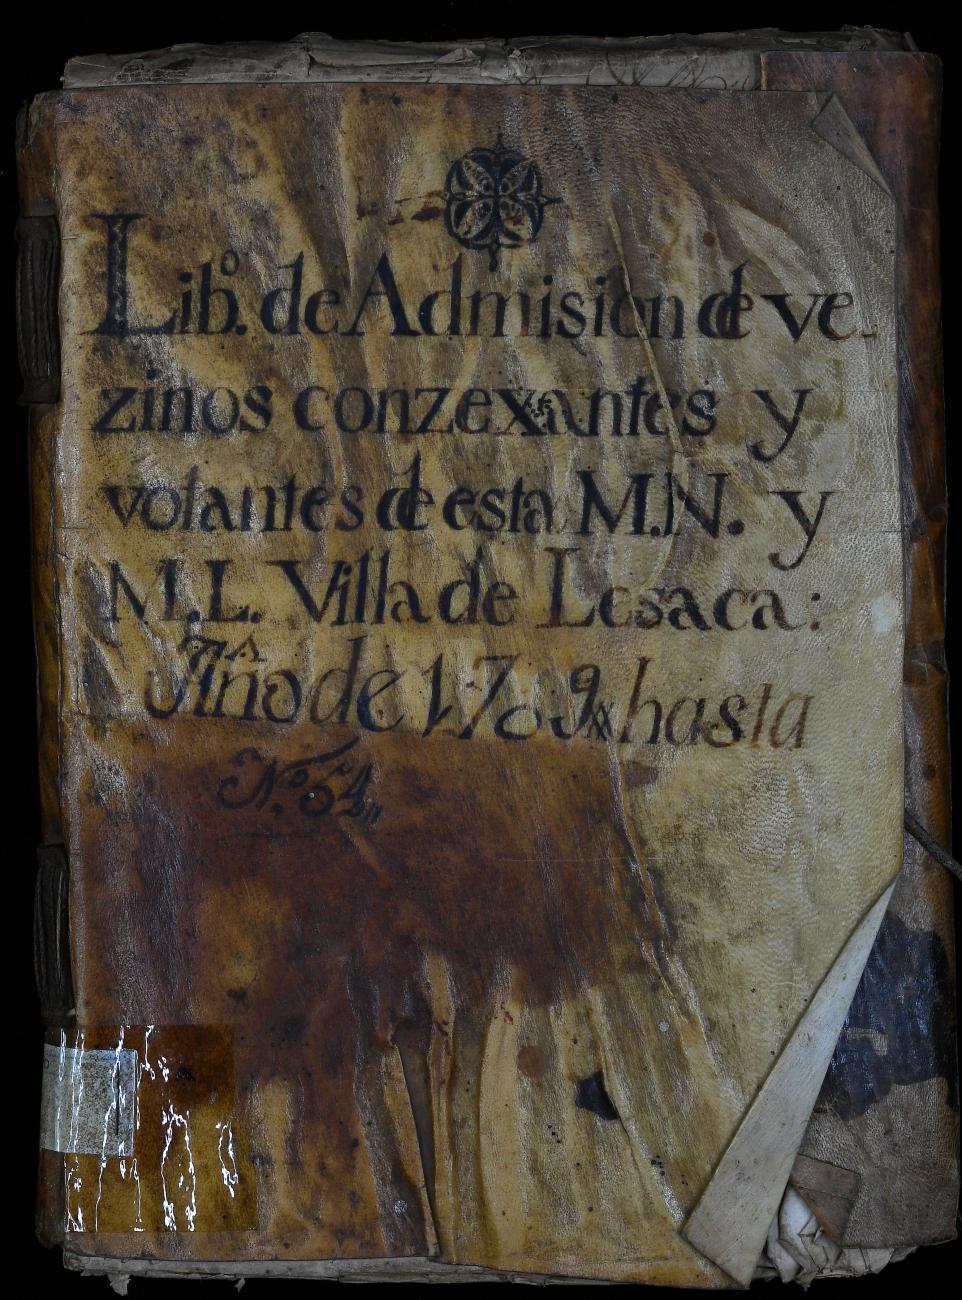 Libº. de Admision de ve-
zinos conzexantes y
votantes de esta M.N. y
M.L. Villa de Lesaca:
Año de 1709 hasta
Nº 54